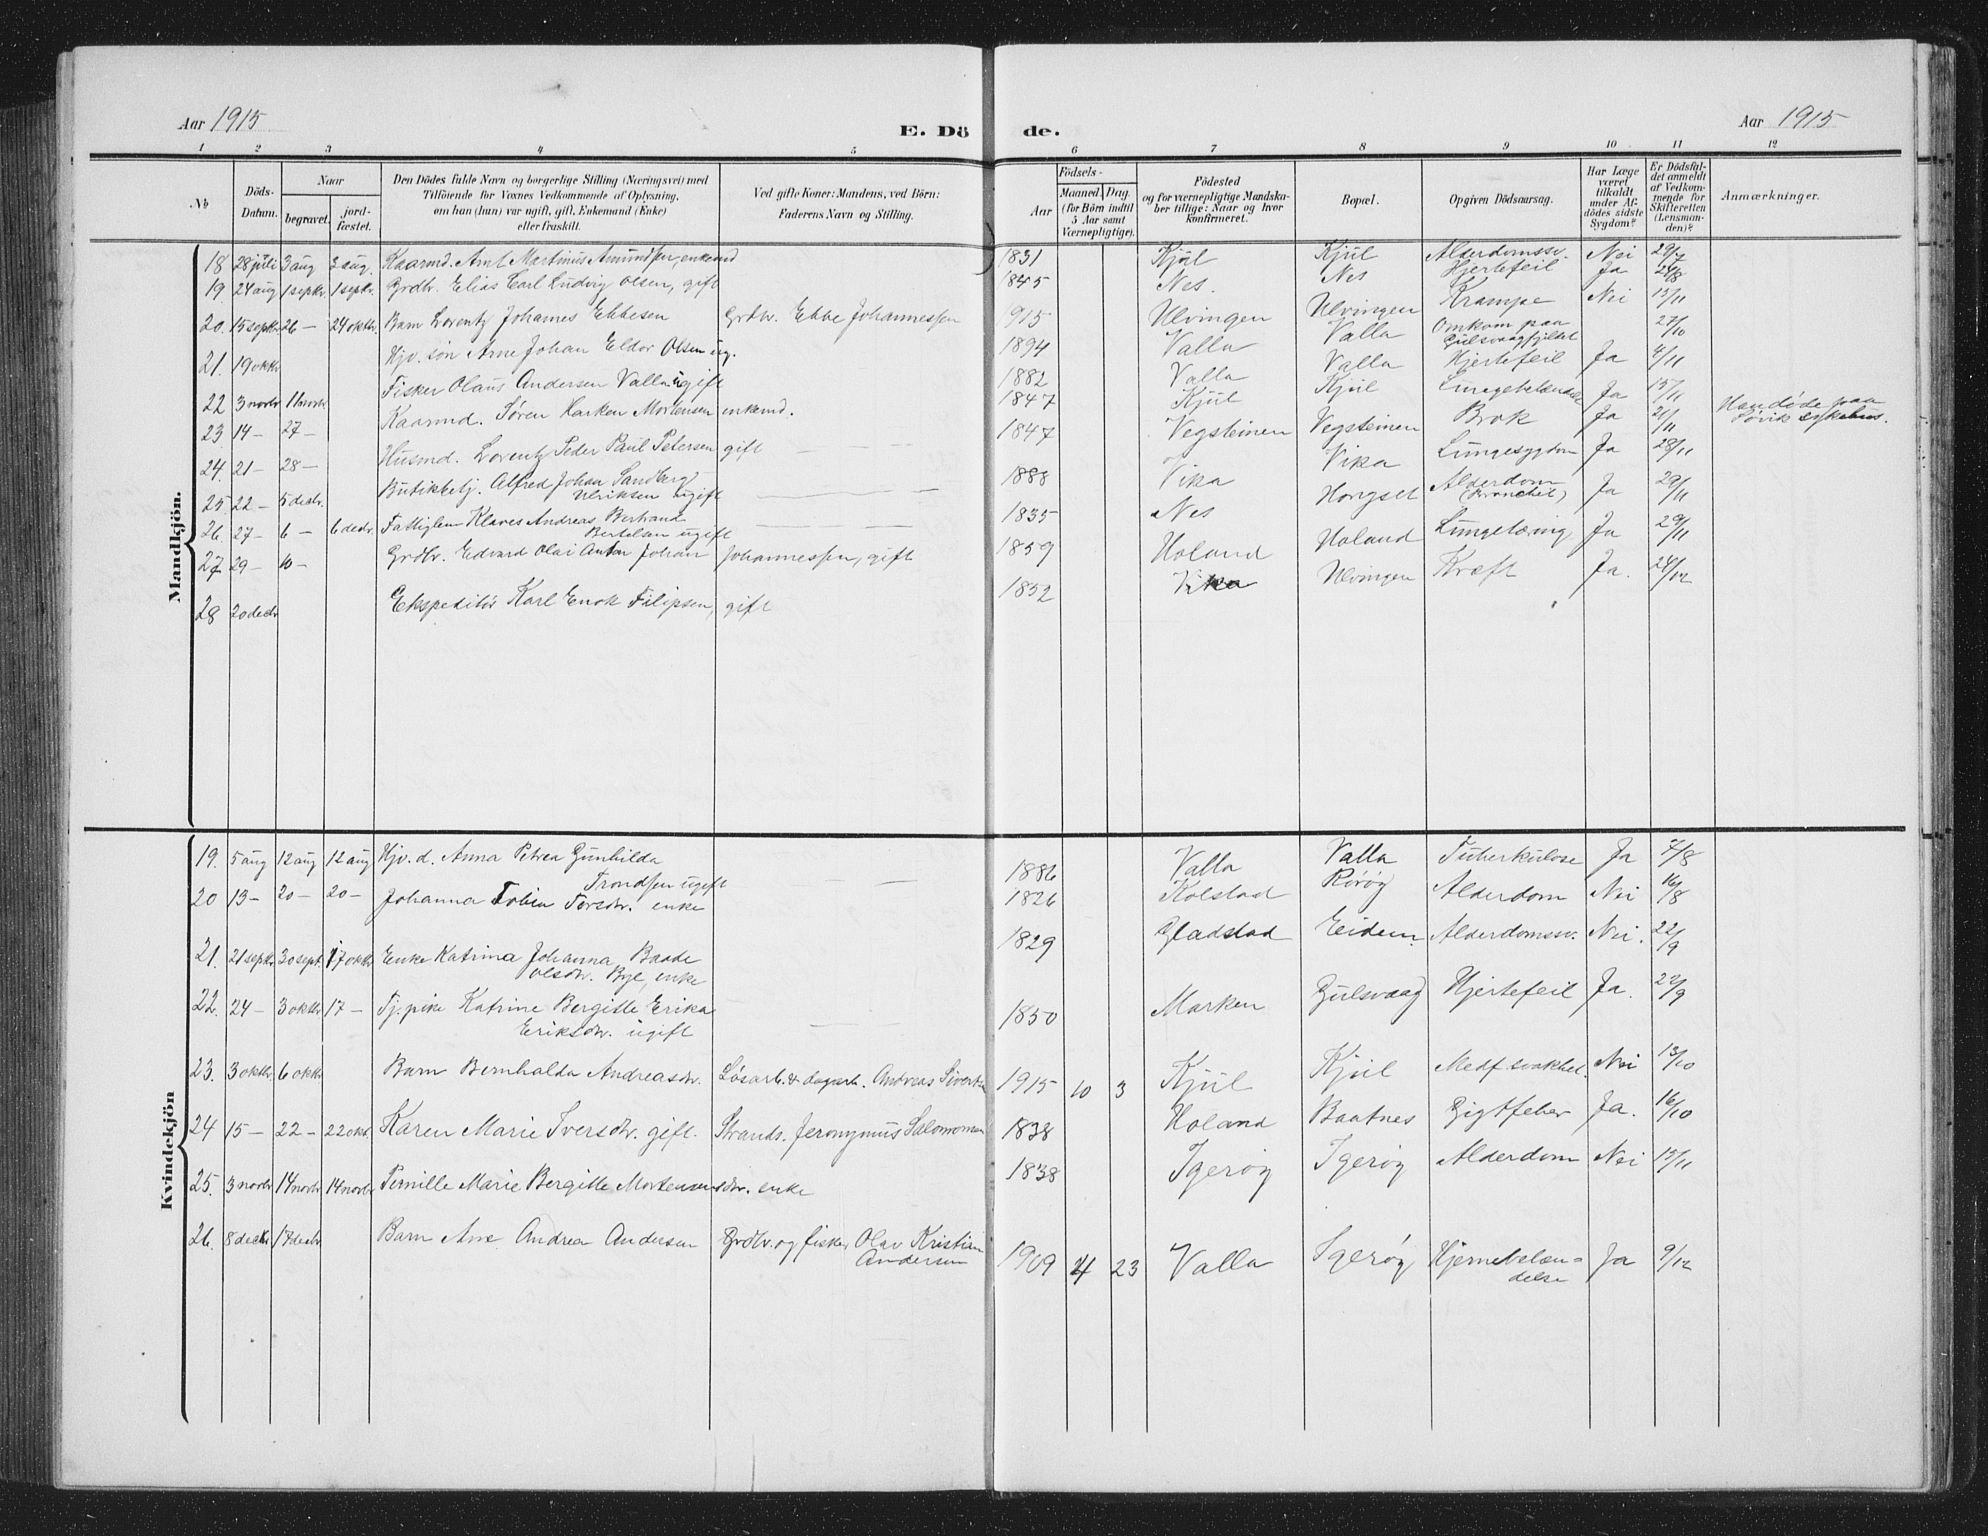 Aar 1915
E. Dö de.
Aar 1915
1 2 3 4 5 6 7 8 9 10 11 12
No
Döds-Datum.
Naar
begravet.
jord-fæstet.
Den Dödes fulde Navn og borgerlige Stilling (Næringsvei) med
Tilföiende for Voxnes Vedkommende af Oplysning,
om han (hun) var ugift, gift, Enkemand (Enke)
eller fraskilt.
Ved gifte Koner: Mandens, ved Börn:
Faderens Navn og Stilling.
Födsels-
Aar
Maaned. Dag.
(for Börn indtil
5 Aar samt
Værnepligtige).
Födested
og for værnepligtige Mandska-
ber tillige: Naar og hvor
konfirmeret.
Bopæl.
Opgiven Dödsaarsag.
Har Læge
været
tilkaldt
under Af-
dödes sidste
Sygdom?
Er Dödsfal-
det anmeldt
af Vedkom-
mende for
Skifteretten
(Lensman-
den)?
Anmærkninger.
Mandkjön.
18 28 juli 3 aug 3 aug. Kaarmd. Arnt Martinus Amundsen, enkemd 1831 Kjül Kjül Alderdomssv. Nei 29/7
19 24 aug 1 septbr. 1 septbr. Grdbr. Elias Carl Ludvig Olsen, gift 1845 Nes. Nes Hjertefeil Ja 24/8
20. 15 septbr. 26 – 24 oktbr. Barn Lorentz Johannes Ebbesen Grdbr. Ebbe Johannessen 1915 Ulvingen Ulvingen Krampe Nei 15/11
21. 19 oktbr. Gjv. søn Arne Johan Eldor Olsen ug. 1894 Valla Valla Omkom paa Gulsvaagfjeldet 27/10
22 3 novbr. 11 novbr. Fisker Olaus Andersen Valla ugift 1882 Valla Valla Hjertefeil Ja 4/11
23 14 – 27 – Kaarmd. Søren Harken Mortensen enkemd. 1847 Kjül Kjül Lungebetændelse Ja 15/11
24. 21 – 28 – Husmd. Lorentz Peder Paul Petersen gift 1847 Vegsteinen Vegsteinen Brok Ja 21/11 Han døde paa Søvik sykehus.
25. 22 – 5 decbr. Butikkbetj. Alfred Johan Sandberg
Ulriksen ugift 1888 Vika Vika Lungesygdom Ja 28/11
26. 27 – 6 – 6 decbr. Fattiglem Klaves Andreas Bertrand
Bertelsen ugift 1835 Nes Hongset Alderdom
(Bronchit) Ja 29/11
27 29 – 10 – Grdbr. Edvard Olai Anton Johan Johannessen, gift 1859 Holand Holand Lungetæring Ja 29/11
28 20 decbr. Ekspeditör Karl Enok Filipsen, gift 1852 Vika Ulvingen Kræft Ja. 24/12
Kvindekjön
19. 5 aug 12 aug 12 aug Gjv. d. Anna Petrea Gunhilda
Trondsen ugift 1886 Valla Valla Tuberkulose Ja 7/8
20 13 – 20 – 20 – Johanna Tobia Torsdtr. enke 1826 Kolstad Rørøy Alderdom Nei 16/8
21. 21 septbr. 30 sept. 17 oktbr. Enke Katrina Johanna Baade
Olsdtr. Bye, enke 1829 Gladstad Eidem. Alderdomssv. Nei. 22/9
22. 24 – 3 oktbr. 17 – Tj. pike Katrine Bergitte Erika
Eriksdtr. ugift 1850 Marken Gulsvaag Hjertefeil Ja. 22/9
23. 3 oktbr. 6 oktbr. Barn Bernhalda Andreasdtr. Løsarb. & dagarb. Andreas Sivertsen 1915 10 3 Kjül Kjül Medf svakhet. Nei 13/10
24 15 – 22 – 22 okt. Karen Marie Iversdtr. gift. Strands. Jeronymus Salomonsen 1838 Holand Baatnes Gigtfeber Ja. 16/10
25. 3 novbr. 14 novbr. 14 novbr. Pernille Marie Bergitte Mortensensdtr. enke 1838 Igerøy Igerøy Alderdom Nei 15/11
26. 8 decbr. 17 decbr. Barn Ane Andrea Andersen Grdbr. og fisker Olav Kristian
Andersen 1909 4 23 Valla Igerøy Hjernebetæn-
delse Ja 9/12